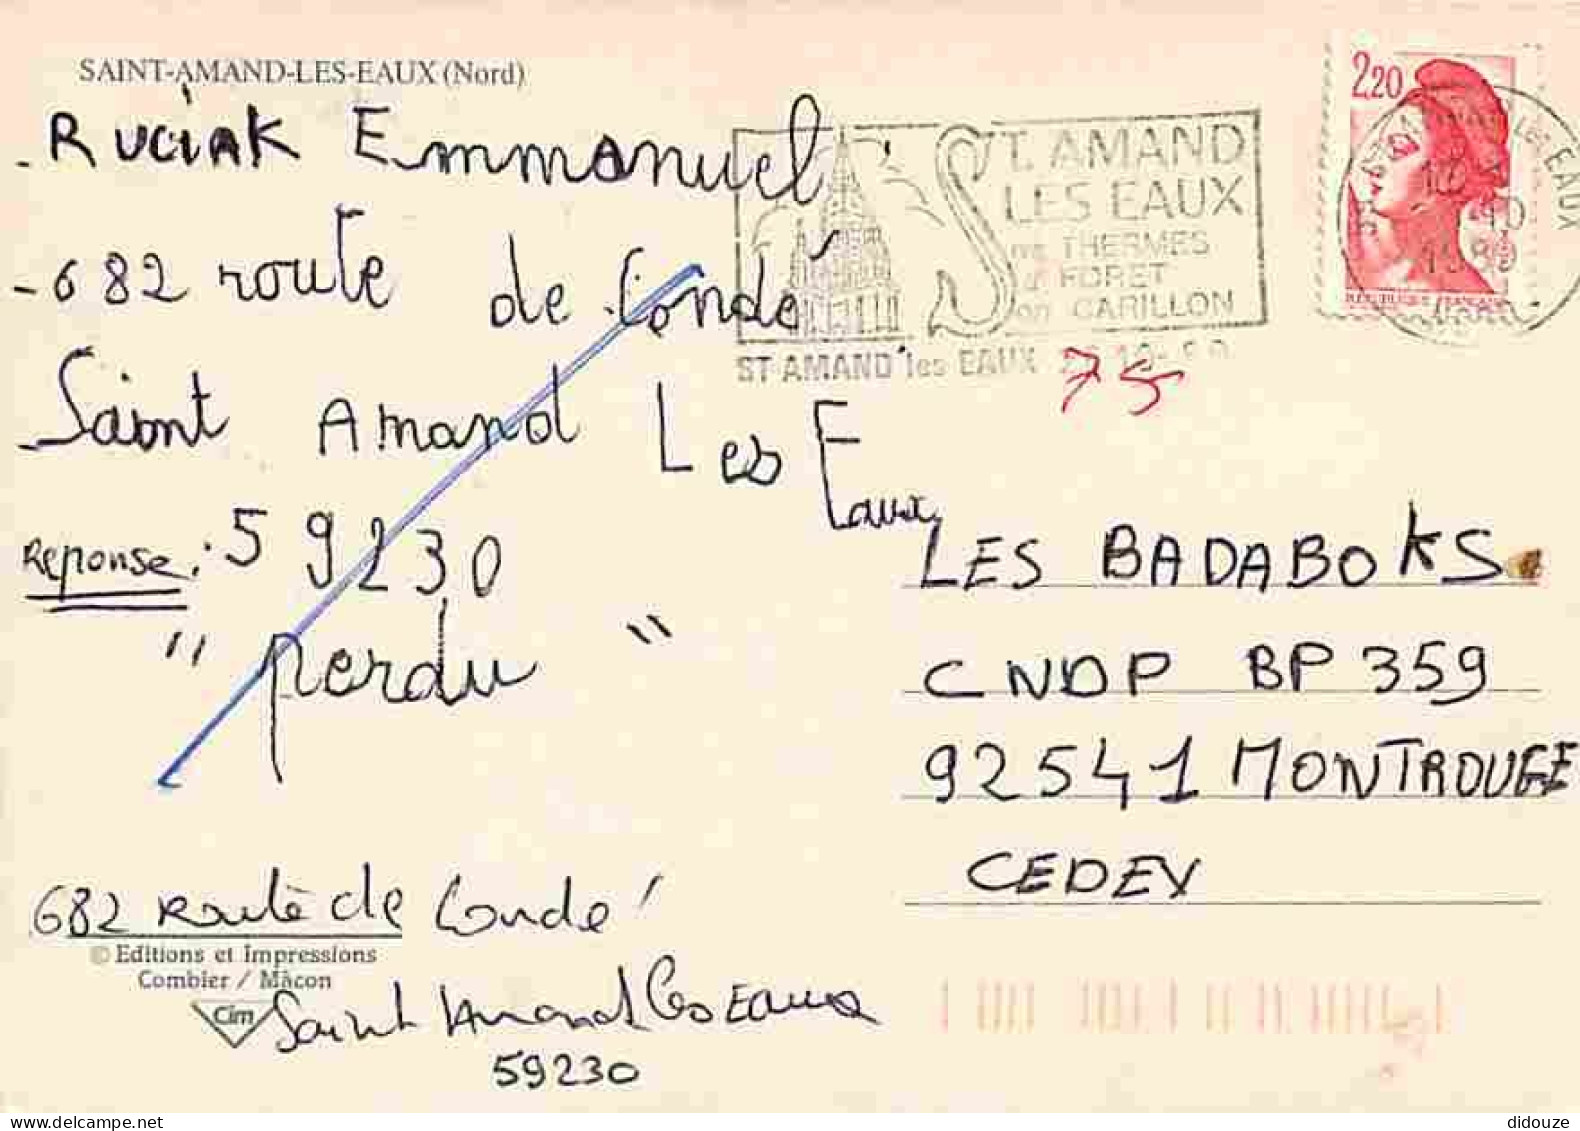 SAINT-AMAND-LES-EAUX (Nord)
- RUCIAK Emmanuel
- 682 route de Condé
Saint Amand Les Eaux
Reponse : 59230
" perdu "
682 Route de Condé
© Editions et Impressions
Combier / Mâcon
Cim
Saint Amand les Eaux
59230
2,20
ST. AMAND
LES EAUX
ses THERMES
sa FORET
son CARILLON
ST AMAND les EAUX
75
LES BADABOKS
CNDP BP 359
92541 MONTROUGE
CEDEX
didouze